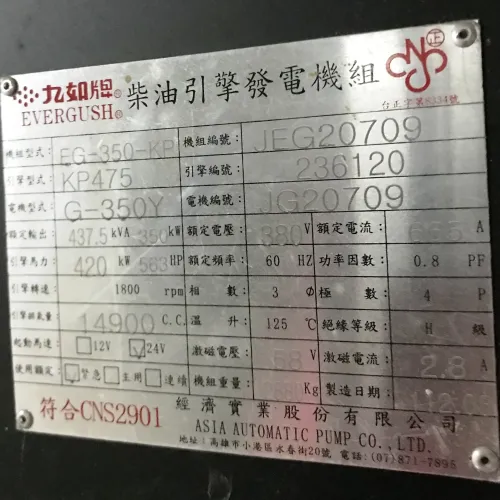 九如牌® 柴油引擎發電機組 正
EVERGUSH® 台正字第8334號
機組型式: EG-350-KP 機組編號: JEG20709
引擎型式: KP475 引擎編號: 236120
電機型式: G-350Y 電機編號: JG20709
額定輸出: 437.5 kVA 350 kW 額定電壓: 380 V 額定電流: A
引擎馬力: 420 kW 563 HP 額定頻率: 60 HZ 功率因數: 0.8 PF
引擎轉速: 1800 rpm 相數: 3 Ø 極數: 4 P
引擎排氣量: 14900 C.C. 溫升: 125 ℃ 絕緣等級: H 級
起動馬達: □12V ☑24V 激磁電壓: 58 V 激磁電流: 2.8 A
使用額定: ☑緊急 □主用 □連續 機組重量: Kg 製造日期:
符合CNS2901 經濟實業股份有限公司
ASIA AUTOMATIC PUMP CO., LTD.
地址:高雄市小港區永春街20號 電話:(07)871-7895